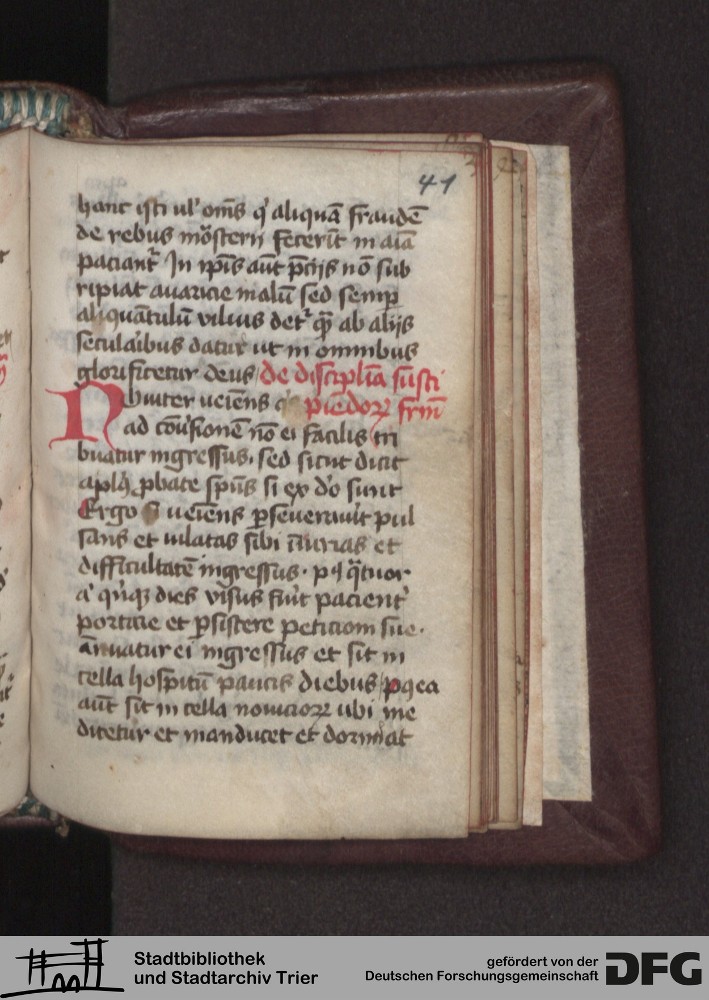 41
hanc isti ul' om̄s q' aliquā fraudē
de rebus mōsterij fecerīt in aīa
paciant᷑ In ip̄is aūt p̄cijs nō sub
ripiat auaricie malū sed semp̱
aliquātulū vilius det᷑ qᷓ ab alijs
secularibus datur ut in omnibus
glorificetur deus de discipl̄ia susci
Nouiter ueīens piēdoꝝ frm̄
ad cōūsionē nō ei facilis tri
buatur ingressus. sed sicut dicit
apl̄s ꝓbate sp̄us si ex d̄o sunt
Ergo si ueīens ꝑseuerauīt pul
sans et illatas sibi īiurias et
difficultatē ingressus. pꝰ q̄tuor
a' qīnqꝫ dies visus fūit pacient᷑
portare et ꝑsistere peticioni sue.
ānuatur ei ingressus et sit in
cella hospitū paucis diebus pꝰea
aūt sit in cella nouicioꝝ ubi me
ditetur et manducet et dormiat
Stadtbibliothek
und Stadtarchiv Trier
gefördert von der
Deutschen Forschungsgemeinschaft
DFG